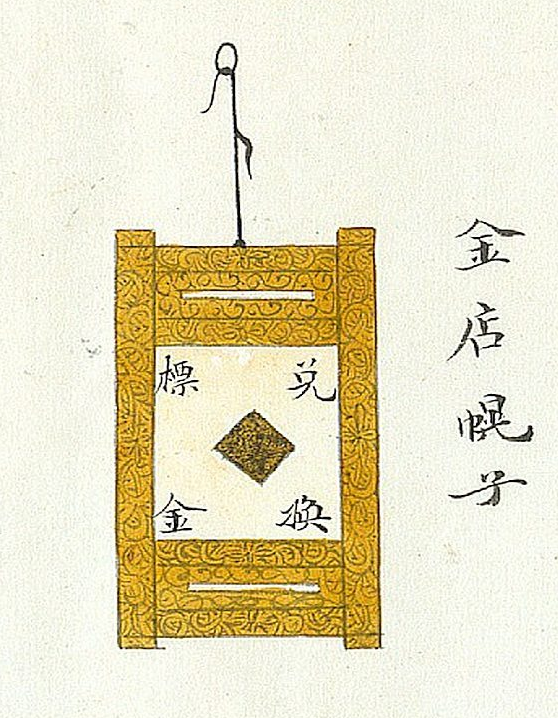 金店幌子
兑换
標金